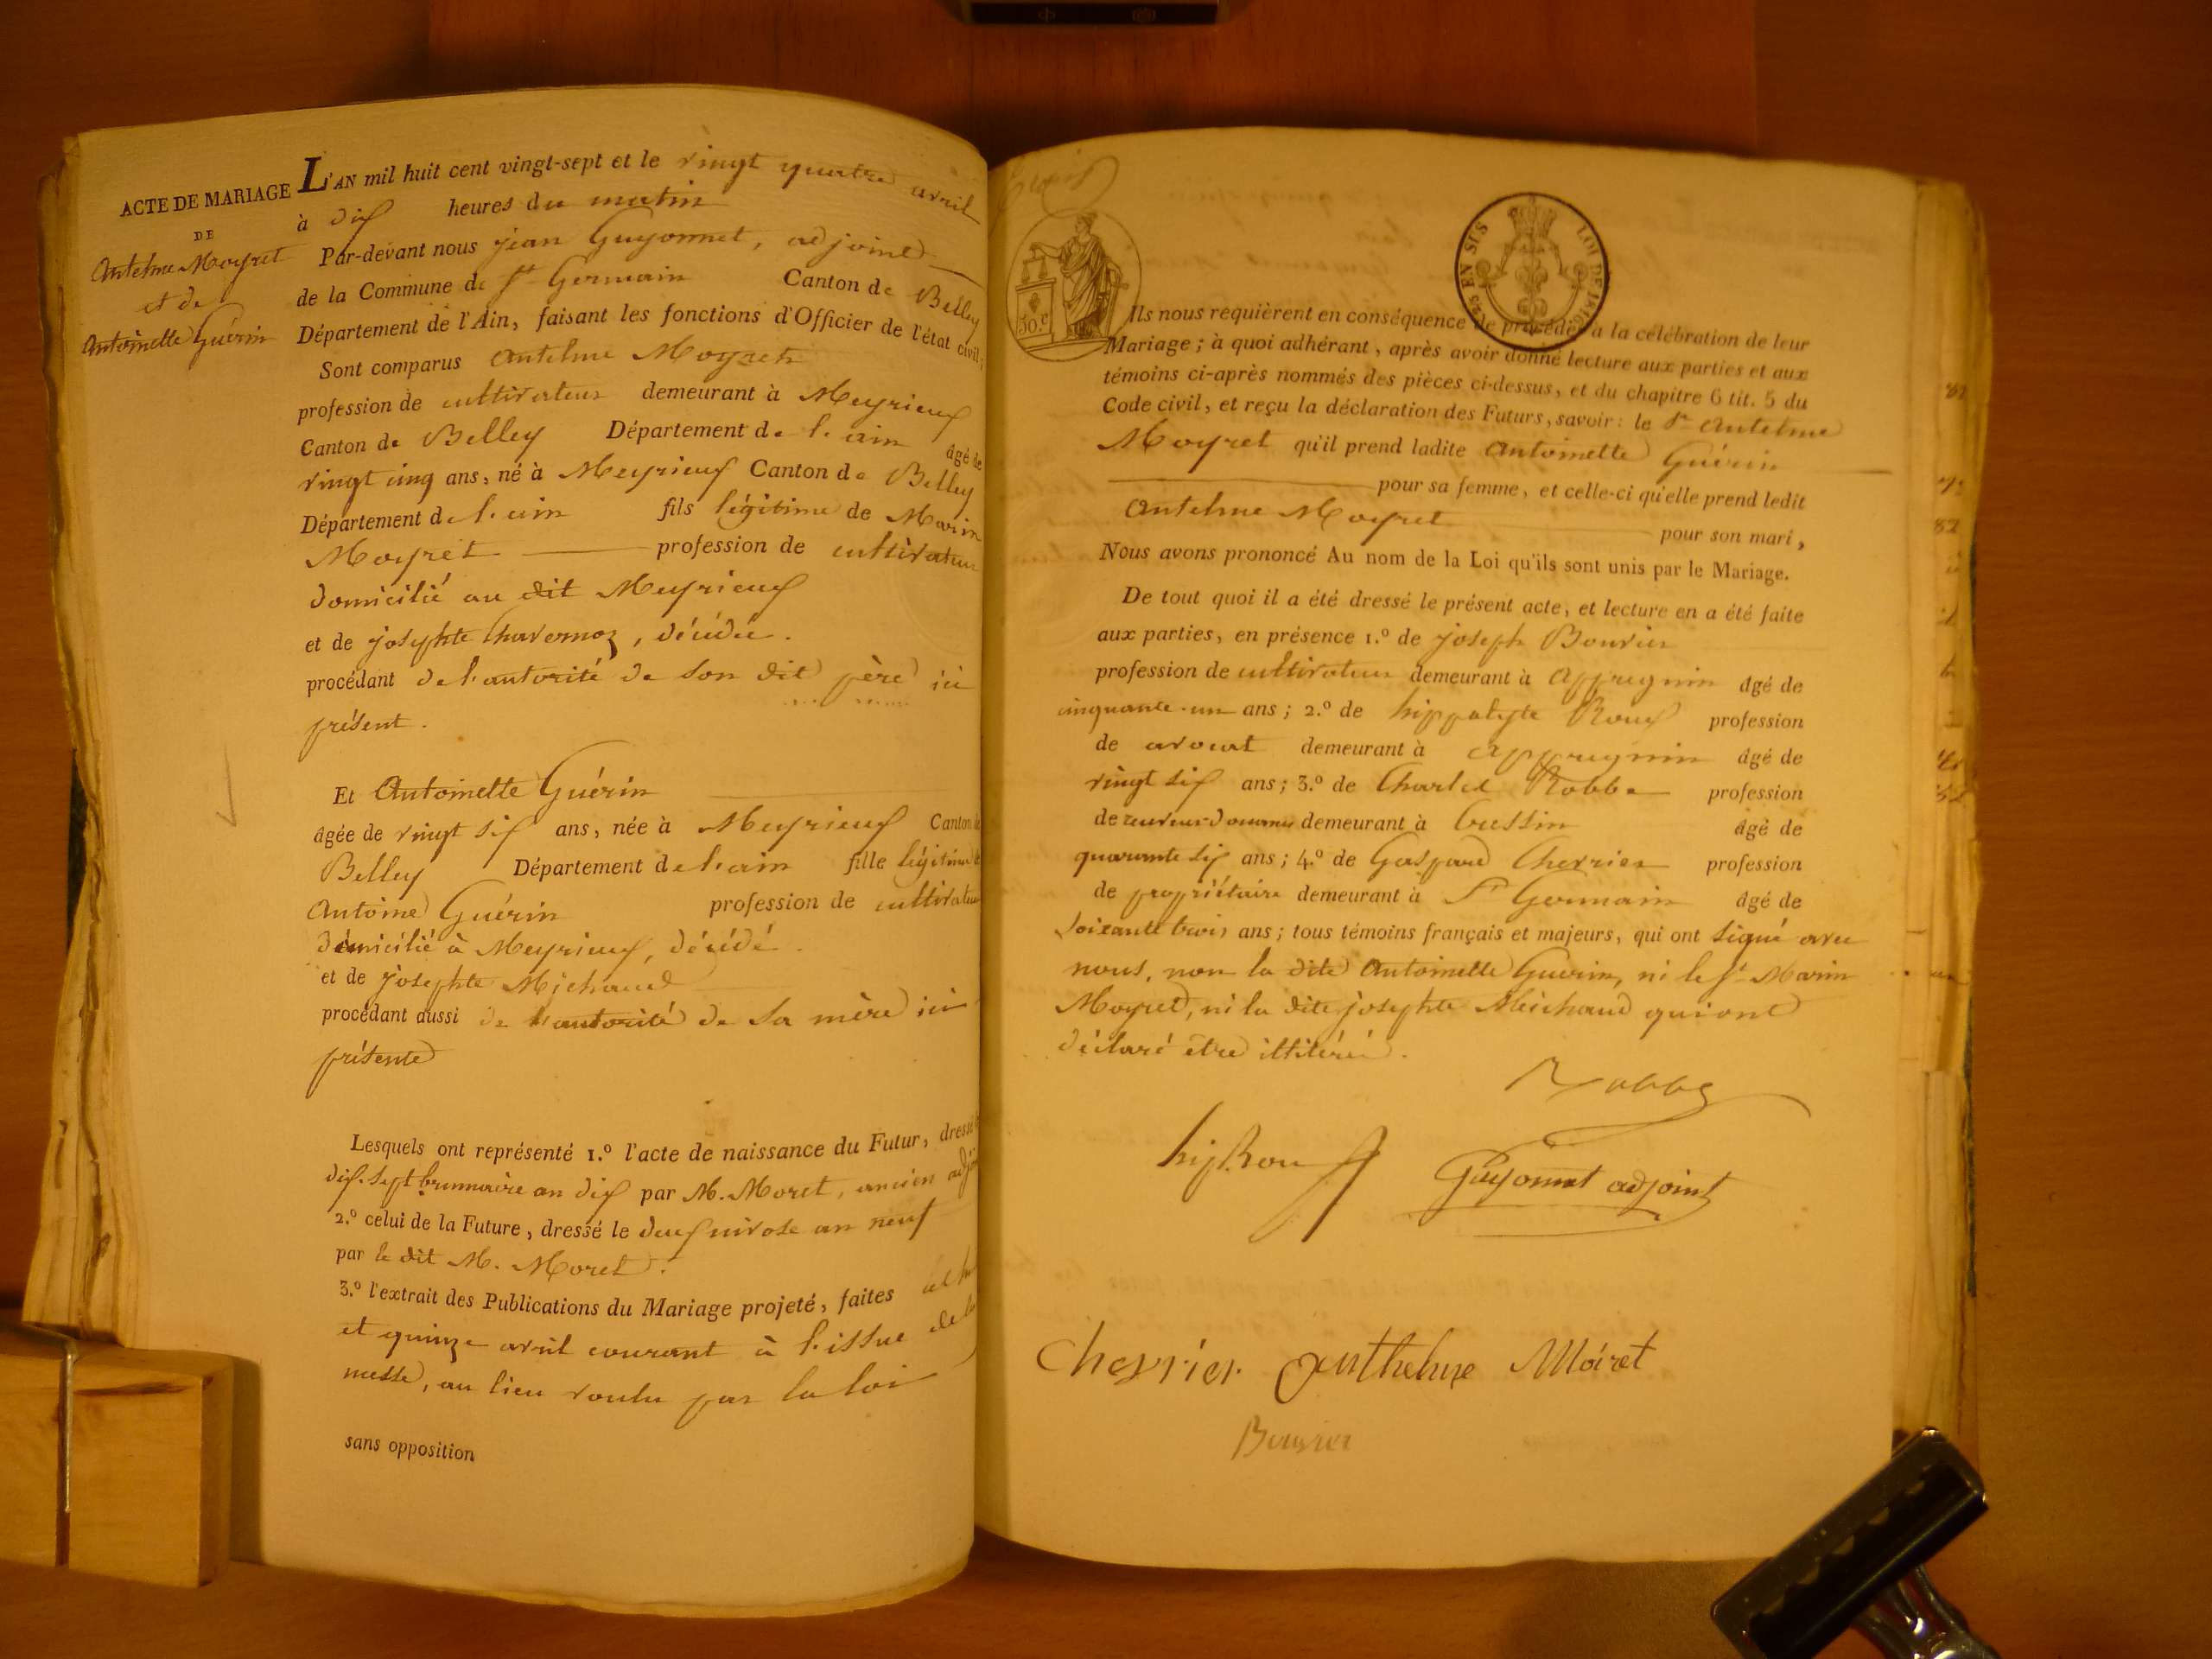 ACTE DE MARIAGE
DE
Antelme Moyret
et de
Antoinette Guérin
L'AN mil huit cent vingt-sept et le vingt quatre avril
à dix heures du matin
Par-devant nous jean Guyonnet, adjoint
de la Commune de St Germain Canton de Belley
Département de l'Ain, faisant les fonctions d'Officier de l'état civil;
Sont comparus Antelme Moyret
profession de cultivateur demeurant à Meyrieux
Canton de Belley Département de l'ain âgé de
vingt cinq ans, né à Meyrieux Canton de Belley
Département de l'ain fils légitime de Marin
Moyret profession de cultivateur
domicilié au dit Meyrieux
et de josephte Chavernoz, décédée.
procédant de l'autorité de son dit père ici
présent.
Et Antoinette Guérin
âgée de vingt six ans, née à Meyrieux Canton de
Belley Département de l'ain fille légitime de
Antoine Guérin profession de cultivateur
domicilié à Meyrieux, décédé.
et de josephte Michaud
procédant aussi de l'autorité de sa mère ici
présente
Lesquels ont représenté 1.º l'acte de naissance du Futur, dressé
dix-sept brumaire an dix par M. Moret, ancien adj
2.º celui de la Future, dressé le deux nivose an neuf
par le dit M. Moret.
3.º l'extrait des Publications du Mariage projeté, faites
et quinze avril courant à l'issue de la
messe, au lieu voulu par la loi
sans opposition
30.c
25 EN SUS LOI DE 1816
Ils nous requièrent en conséquence de procéder à la célébration de leur
Mariage; à quoi adhérant, après avoir donné lecture aux parties et aux
témoins ci-après nommés des pièces ci-dessus, et du chapitre 6 tit. 5 du
Code civil, et reçu la déclaration des Futurs, savoir: le Sr Antelme
Moyret qu'il prend ladite Antoinette Guérin
pour sa femme, et celle-ci qu'elle prend ledit
Antelme Moyret pour son mari,
Nous avons prononcé Au nom de la Loi qu'ils sont unis par le Mariage.
De tout quoi il a été dressé le présent acte, et lecture en a été faite
aux parties, en présence 1.º de joseph Bouvier
profession de cultivateur demeurant à Appregnin âgé de
cinquante-un ans; 2.º de hippolyte Roux profession
de avocat demeurant à Appregnin âgé de
vingt six ans; 3.º de Charles Robbe profession
de demeurant à Cressin âgé de
quarante six ans; 4.º de Gaspard Chevrier profession
de propriétaire demeurant à St Germain âgé de
soixante trois ans; tous témoins français et majeurs, qui ont signé avec
nous, non la dite Antoinette Guérin, ni le Sr Marin
Moyret, ni la dite josephte Michaud qui ont
déclaré être illitérés.
Robbe
hip Roux
Guyonnet adjoint
Chevrier Anthelme Moiret
Bouvier